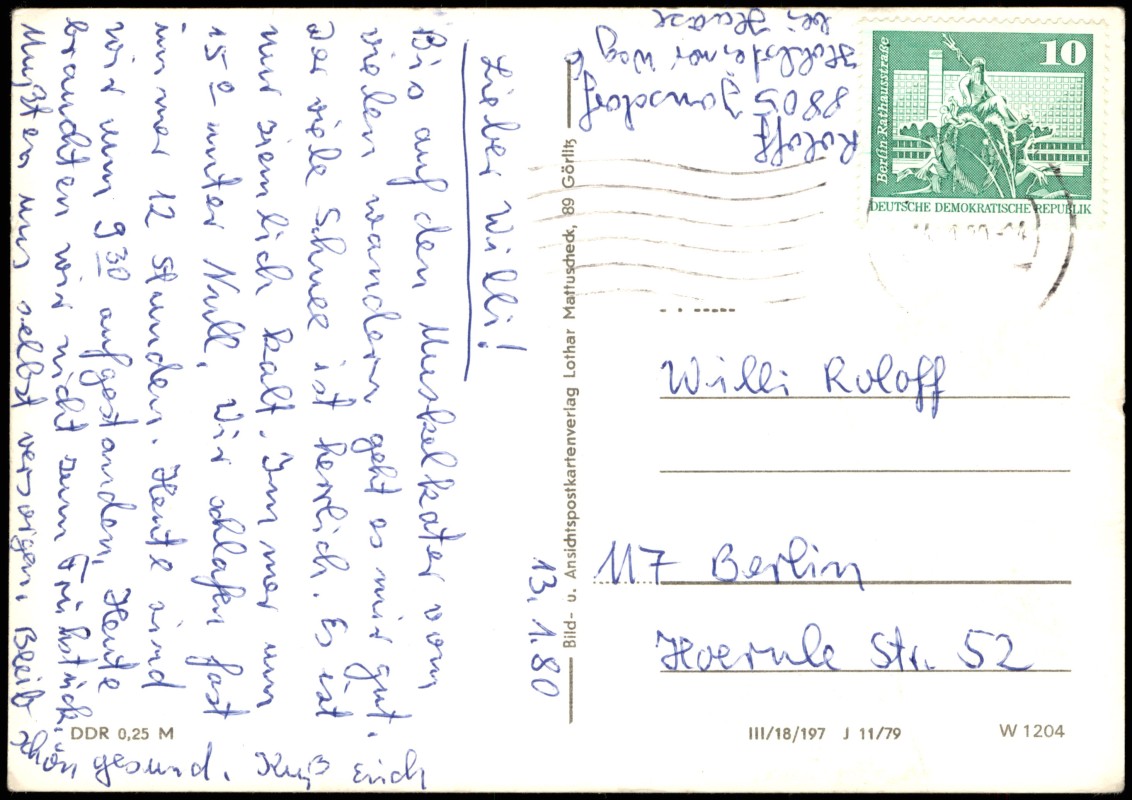 13.1.80
Lieber Willi!
Bis auf den Muskelkater vom
vielen wandern geht es mir gut.
Der viele Schnee ist herrlich. Es ist
nur ziemlich kalt. Immer um
15° unter Null. Wir schlafen fast
immer 12 Stunden. Heute sind
wir um 9 30 aufgestanden. Heute
brauchten wir nicht zum Frühstück.
Mußten uns selbst versorgen. Bleib
schön gesund. Kuß Erich
Roloff
8805 Jonsdorf
Weg 6
bei
10
Berlin-Rathausstraße
DEUTSCHE DEMOKRATISCHE REPUBLIK
Bild- u. Ansichtspostkartenverlag Lothar Mattuscheck, 89 Görlitz
Willi Roloff
117 Berlin
Hoernle Str. 52
DDR 0,25 M
III/18/197 J 11/79
W 1204